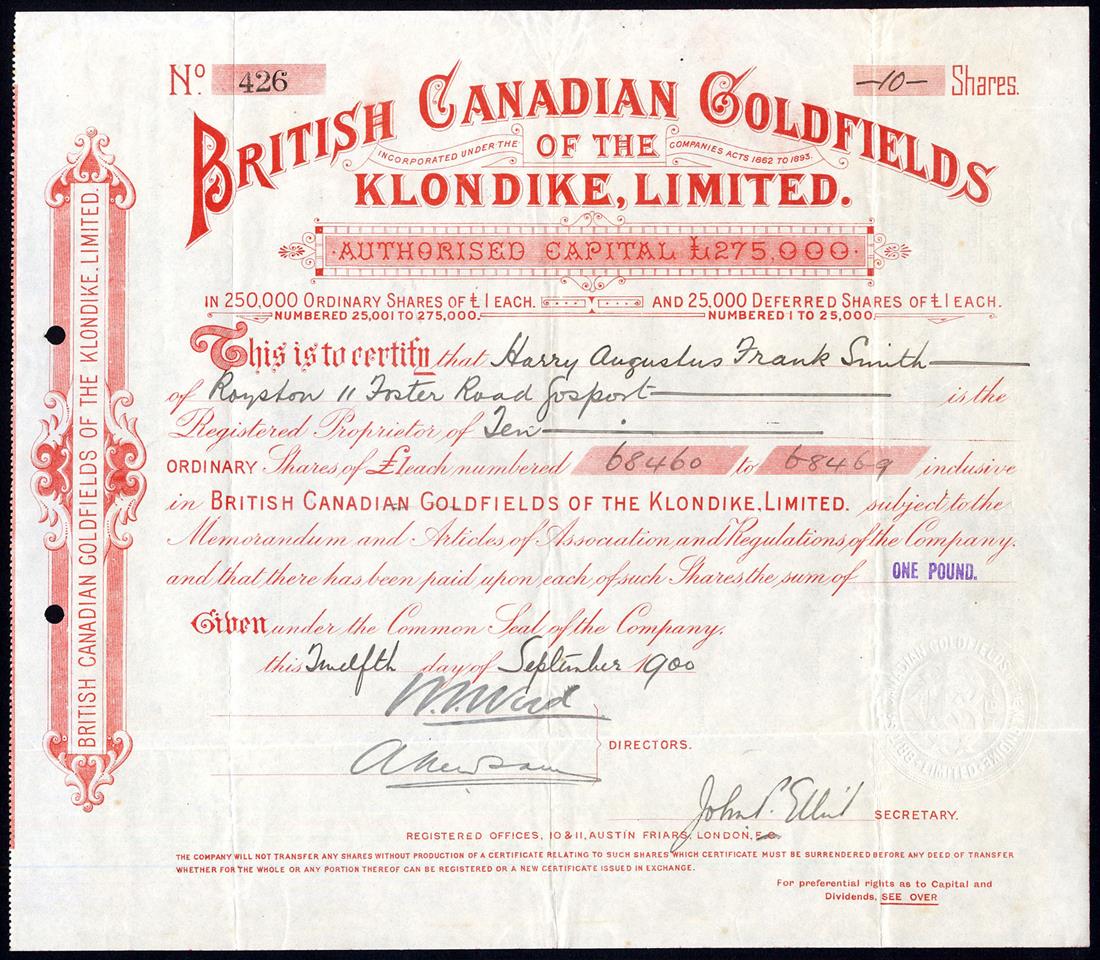 No. 426
-10- Shares.
BRITISH CANADIAN GOLDFIELDS
INCORPORATED UNDER THE OF THE COMPANIES ACTS 1862 TO 1893.
KLONDIKE, LIMITED.
AUTHORISED CAPITAL £275,000.
IN 250,000 ORDINARY SHARES OF £1 EACH. AND 25,000 DEFERRED SHARES OF £1 EACH.
NUMBERED 25,001 TO 275,000. NUMBERED 1 TO 25,000.
This is to certify that Harry Augustus Frank Smith
of Royston 11 Foster Road Gosport is the
Registered Proprietor of Ten
ORDINARY Shares of £1 each numbered 68460 to 68469 inclusive
in BRITISH CANADIAN GOLDFIELDS OF THE KLONDIKE, LIMITED. subject to the
Memorandum and Articles of Association and Regulations of the Company.
and that there has been paid upon each of such Shares the sum of ONE POUND.
Given under the Common Seal of the Company.
this Twelfth day of September 1900
DIRECTORS.
SECRETARY.
REGISTERED OFFICES, 10 & 11, AUSTIN FRIARS, LONDON, E.C.
THE COMPANY WILL NOT TRANSFER ANY SHARES WITHOUT PRODUCTION OF A CERTIFICATE RELATING TO SUCH SHARES WHICH CERTIFICATE MUST BE SURRENDERED BEFORE ANY DEED OF TRANSFER
WHETHER FOR THE WHOLE OR ANY PORTION THEREOF CAN BE REGISTERED OR A NEW CERTIFICATE ISSUED IN EXCHANGE.
For preferential rights as to Capital and
Dividends, SEE OVER
BRITISH CANADIAN GOLDFIELDS OF THE KLONDIKE, LIMITED.